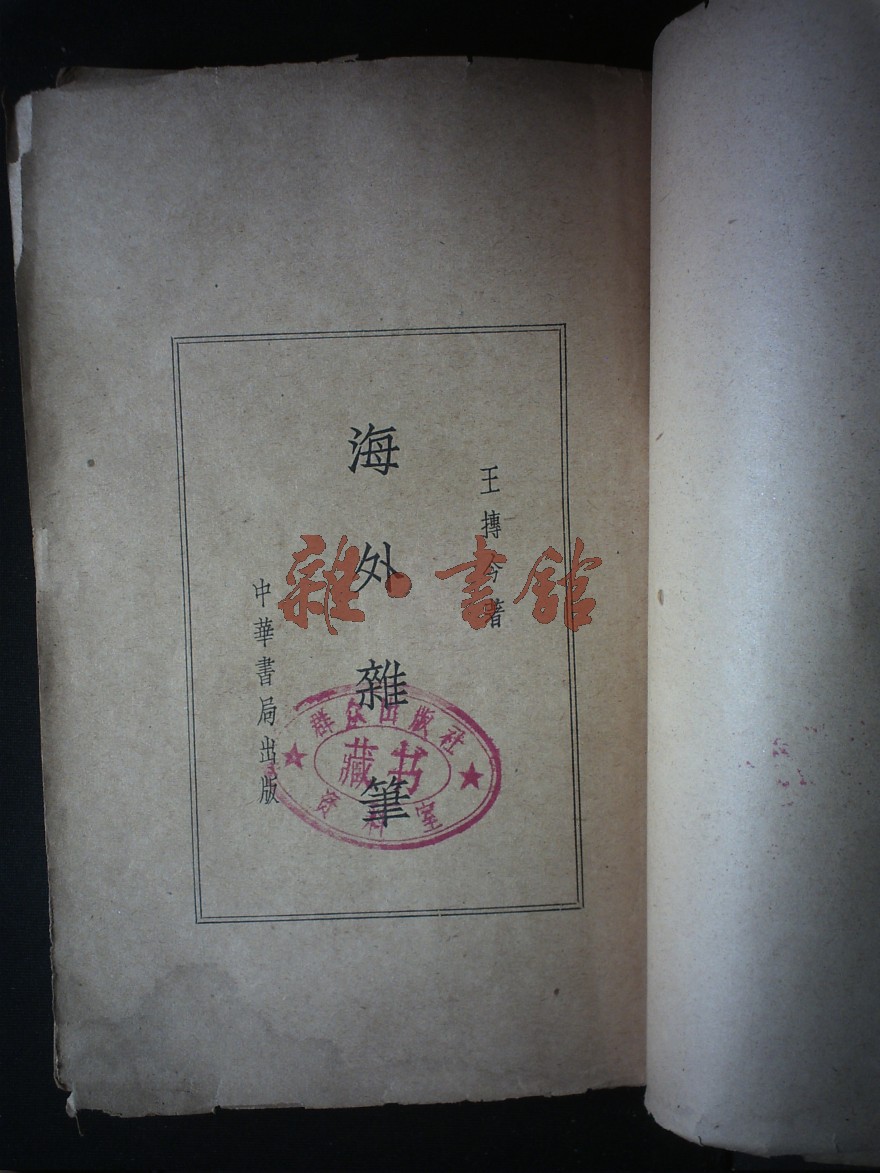 王摶今著
海外雜筆
中華書局出版
群众出版社
藏书
资料室
雜·書館